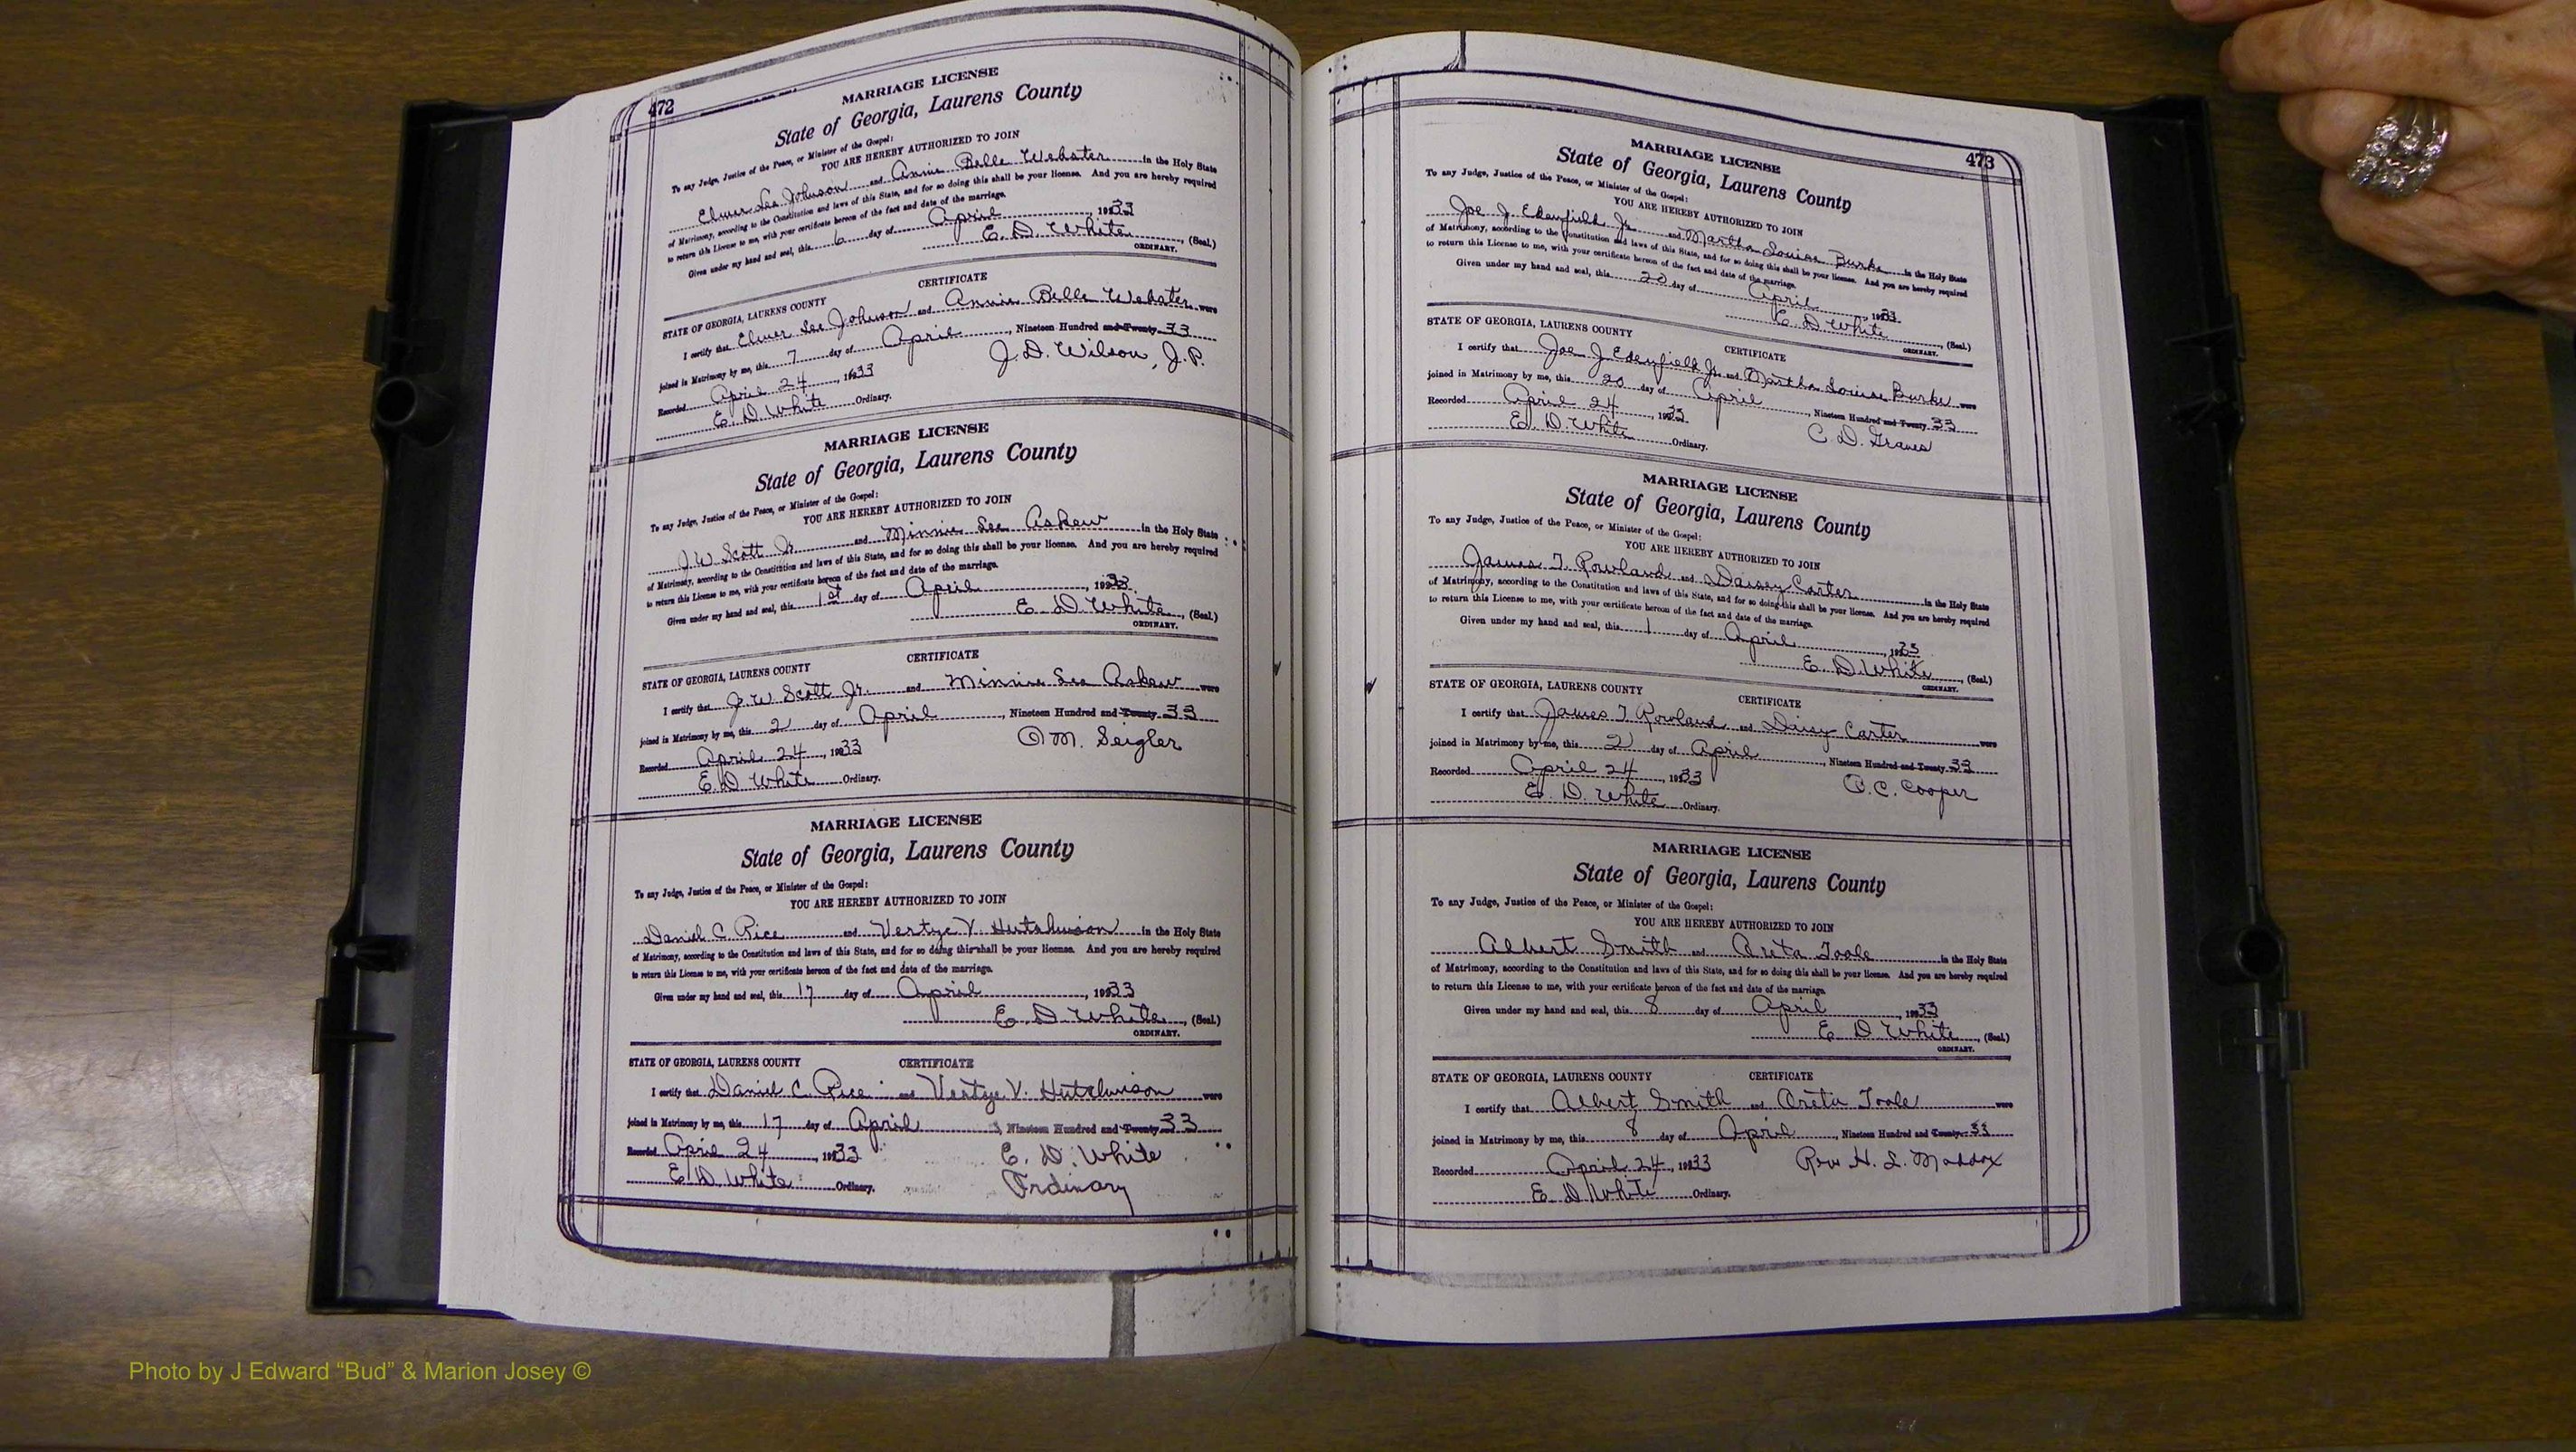 472
MARRIAGE LICENSE
State of Georgia, Laurens County
To any Judge, Justice of the Peace, or Minister of the Gospel:
YOU ARE HEREBY AUTHORIZED TO JOIN
Elmer Lee Johnson and Annie Belle Webster in the Holy State
of Matrimony, according to the Constitution and laws of this State, and for so doing this shall be your license. And you are hereby required
to return this License to me, with your certificate hereon of the fact and date of the marriage.
Given under my hand and seal, this 6 day of April, 1933
E. D. White, (Seal.)
ORDINARY.
CERTIFICATE
STATE OF GEORGIA, LAURENS COUNTY
I certify that Elmer Lee Johnson and Annie Belle Webster were
joined in Matrimony by me, this 7 day of April, Nineteen Hundred and Twenty 33
Recorded April 24, 1933 J. D. Wilson, J.P.
E. D. White Ordinary.
MARRIAGE LICENSE
State of Georgia, Laurens County
To any Judge, Justice of the Peace, or Minister of the Gospel:
YOU ARE HEREBY AUTHORIZED TO JOIN
J W Scott Jr. and Minnie Lee Askew in the Holy State
of Matrimony, according to the Constitution and laws of this State, and for so doing this shall be your license. And you are hereby required
to return this License to me, with your certificate hereon of the fact and date of the marriage.
Given under my hand and seal, this 1st day of April, 1933
E. D. White, (Seal.)
ORDINARY.
CERTIFICATE
STATE OF GEORGIA, LAURENS COUNTY
I certify that J. W Scott Jr. and Minnie Lee Askew were
joined in Matrimony by me, this 2 day of April, Nineteen Hundred and Twenty 33
Recorded April 24, 1933 O M. Seigler
E. D. White Ordinary.
MARRIAGE LICENSE
State of Georgia, Laurens County
To any Judge, Justice of the Peace, or Minister of the Gospel:
YOU ARE HEREBY AUTHORIZED TO JOIN
Daniel C Rice and Vertye V. Hutchinson in the Holy State
of Matrimony, according to the Constitution and laws of this State, and for so doing this shall be your license. And you are hereby required
to return this License to me, with your certificate hereon of the fact and date of the marriage.
Given under my hand and seal, this 17 day of April, 1933
E. D. White, (Seal.)
ORDINARY.
STATE OF GEORGIA, LAURENS COUNTY CERTIFICATE
I certify that Daniel C. Rice and Vertye V. Hutchinson were
joined in Matrimony by me, this 17 day of April, Nineteen Hundred and Twenty 33
Recorded April 24, 1933 E. D. White
E. D. White Ordinary. Ordinary
473
MARRIAGE LICENSE
State of Georgia, Laurens County
To any Judge, Justice of the Peace, or Minister of the Gospel:
YOU ARE HEREBY AUTHORIZED TO JOIN
Joe J Edenfield Jr and Martha Louise Burke in the Holy State
of Matrimony, according to the Constitution and laws of this State, and for so doing this shall be your license. And you are hereby required
to return this License to me, with your certificate hereon of the fact and date of the marriage.
Given under my hand and seal, this 20 day of April, 1933
E. D White, (Seal.)
ORDINARY.
STATE OF GEORGIA, LAURENS COUNTY CERTIFICATE
I certify that Joe J Edenfield Jr. and Martha Louise Burke were
joined in Matrimony by me, this 20 day of April, Nineteen Hundred and Twenty 33
Recorded April 24, 1933 C. D. Graves
E. D. White Ordinary.
MARRIAGE LICENSE
State of Georgia, Laurens County
To any Judge, Justice of the Peace, or Minister of the Gospel:
YOU ARE HEREBY AUTHORIZED TO JOIN
James T. Rowland and Daisy Carter in the Holy State
of Matrimony, according to the Constitution and laws of this State, and for so doing this shall be your license. And you are hereby required
to return this License to me, with your certificate hereon of the fact and date of the marriage.
Given under my hand and seal, this 1 day of April, 1933
E. D. White, (Seal.)
ORDINARY.
STATE OF GEORGIA, LAURENS COUNTY CERTIFICATE
I certify that James T Rowland and Daisy Carter were
joined in Matrimony by me, this 2 day of April, Nineteen Hundred and Twenty 33
Recorded April 24, 1933 C. Cooper
E. D. White Ordinary.
MARRIAGE LICENSE
State of Georgia, Laurens County
To any Judge, Justice of the Peace, or Minister of the Gospel:
YOU ARE HEREBY AUTHORIZED TO JOIN
Albert Smith and Oreta Toole in the Holy State
of Matrimony, according to the Constitution and laws of this State, and for so doing this shall be your license. And you are hereby required
to return this License to me, with your certificate hereon of the fact and date of the marriage.
Given under my hand and seal, this 8 day of April, 1933
E. D. White, (Seal.)
ORDINARY.
STATE OF GEORGIA, LAURENS COUNTY CERTIFICATE
I certify that Albert Smith and Oreta Toole were
joined in Matrimony by me, this 8 day of April, Nineteen Hundred and Twenty 33
Recorded April 24, 1933 Rev H. L. Maddox
E. D. White Ordinary.
Photo by J Edward “Bud” & Marion Josey ©